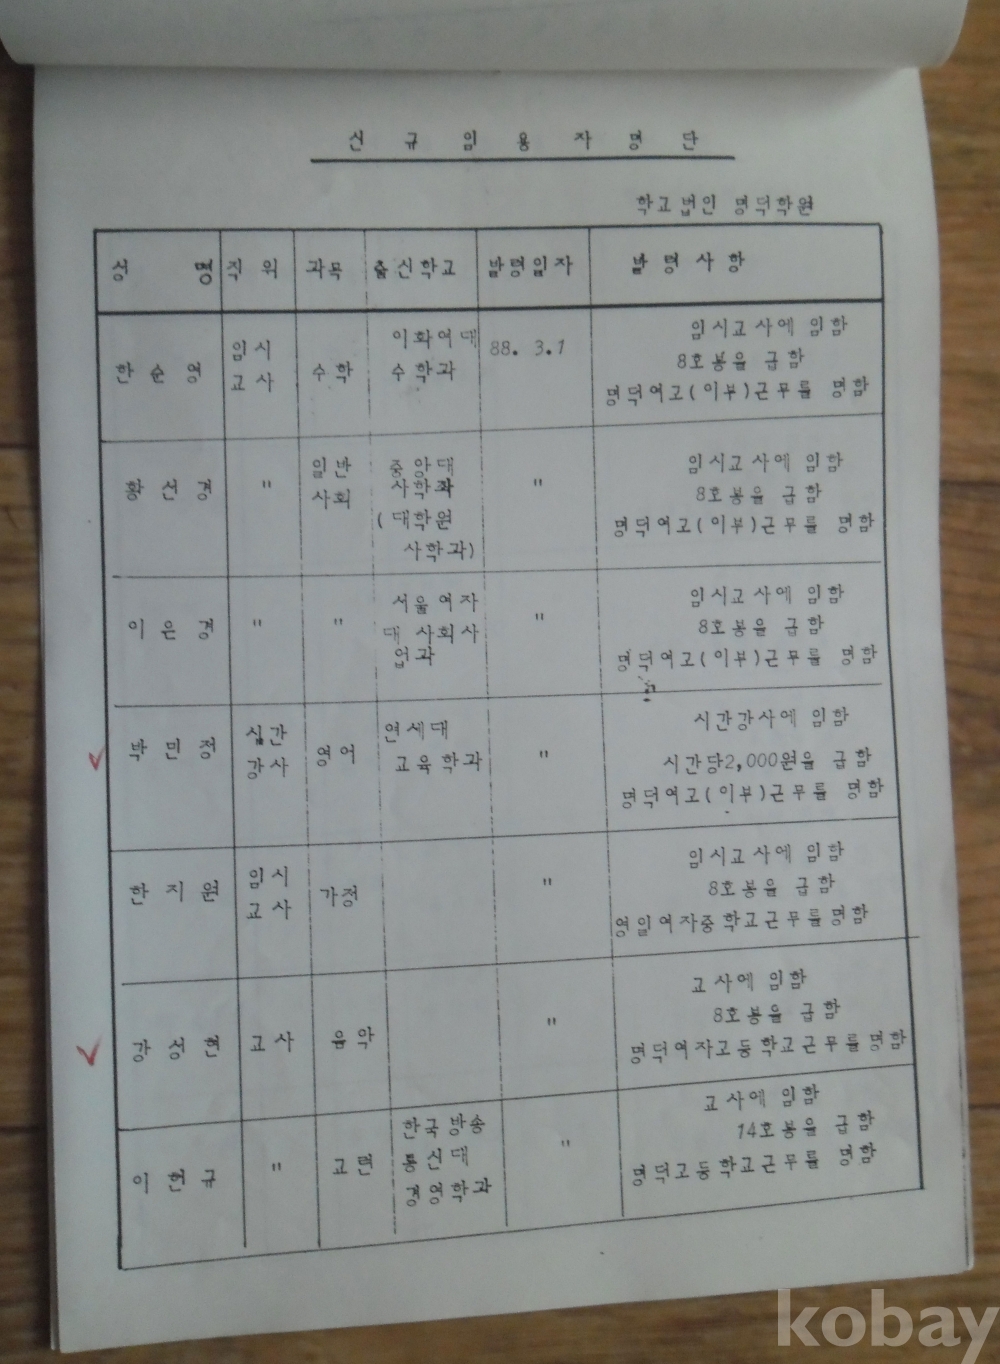 신 규 임 용 자 명 단
학교법인 명덕학원
성 명 직 위 과목 출신학교 발령일자 발 령 사 항
한 순 영 임시 교사 수학 이화여대 수학과 88. 3.1 임시교사에 임함
8호봉을 급함
명덕여고(이부)근무를 명함
황 선 경 " 일반 사회 중앙대 사학과 (대학원 사학과) " 임시교사에 임함
8호봉을 급함
명덕여고(이부)근무를 명함
이 은 경 " " 서울여자 대 사회사 업과 " 임시교사에 임함
8호봉을 급함
명덕여고(이부)근무를 명함
박 민 정 시간 강사 영어 연세대 교육학과 " 시간강사에 임함
시간당2,000원을 급함
명덕여고(이부)근무를 명함
한 지 원 임시 교사 가정 " 임시교사에 임함
8호봉을 급함
영일여자중학교근무를명함
강 성 현 교사 음악 " 교사에 임함
8호봉을 급함
명덕여자고등학교근무를명함
이 헌 규 " 교련 한국방송 통신대 경영학과 " 교사에 임함
14호봉을 급함
명덕고등학교근무를 명함
kobay